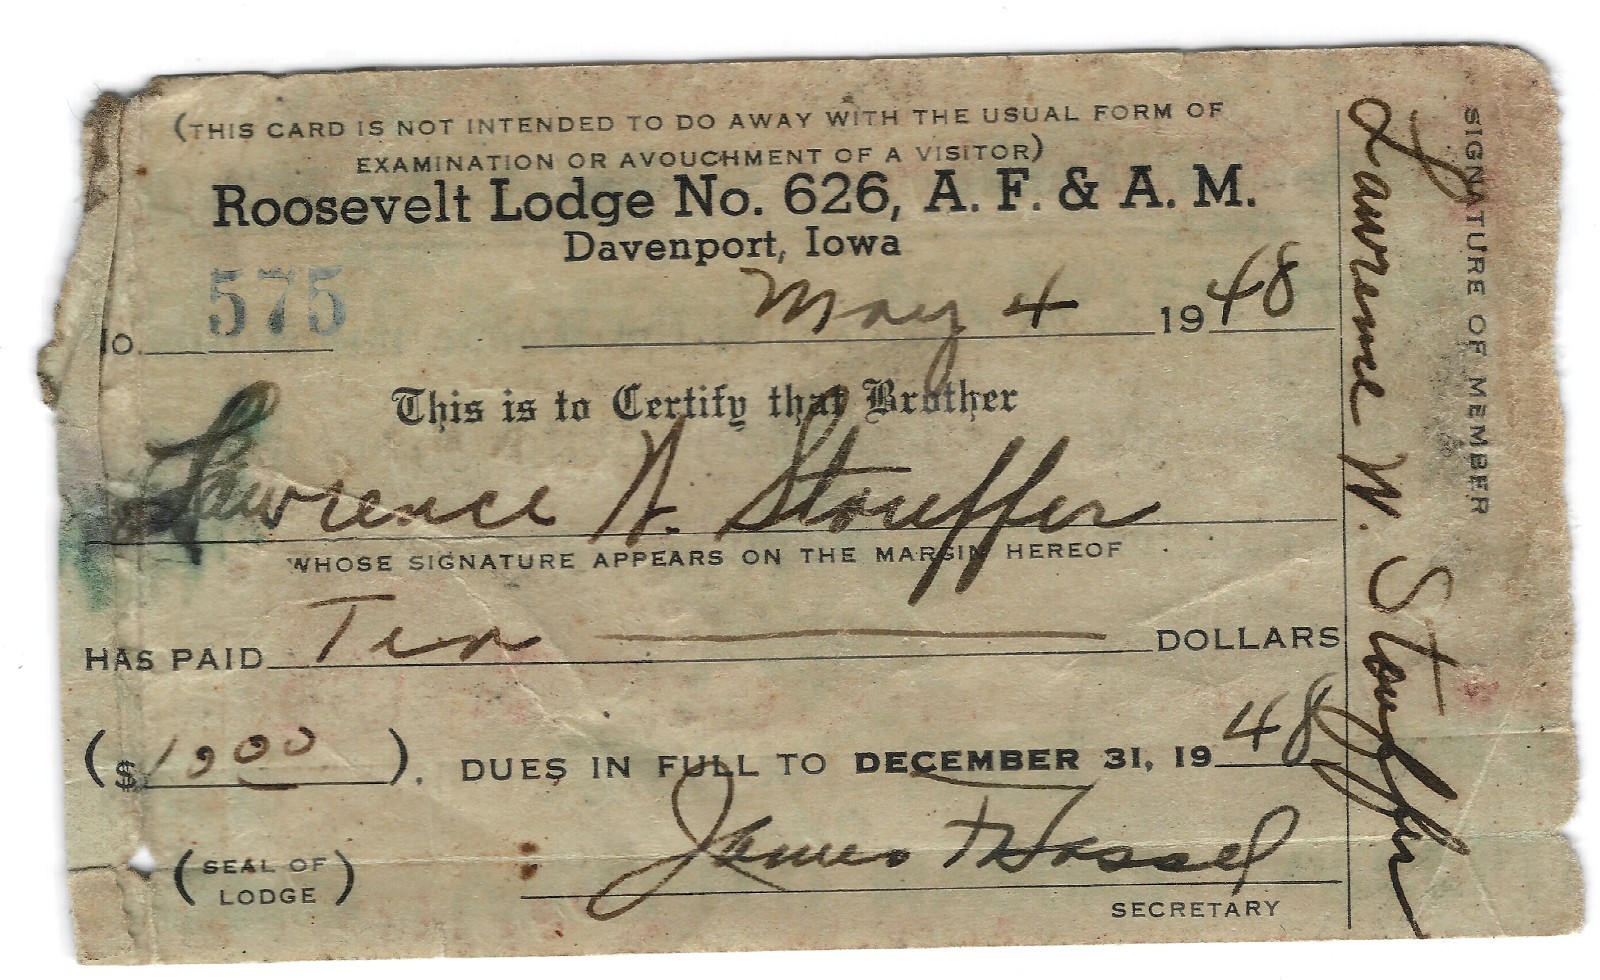 (THIS CARD IS NOT INTENDED TO DO AWAY WITH THE USUAL FORM OF
EXAMINATION OR AVOUCHMENT OF A VISITOR)
Roosevelt Lodge No. 626, A. F. & A. M.
Davenport, Iowa
lo. 575 May 4 1948
This is to Certify that Brother
Lawrence W. Stouffer
WHOSE SIGNATURE APPEARS ON THE MARGIN HEREOF
HAS PAID Ten DOLLARS
($ 10.00). DUES IN FULL TO DECEMBER 31, 1948
(SEAL OF
LODGE)
James
SECRETARY
Lawrence W. Stouffer
SIGNATURE OF MEMBER